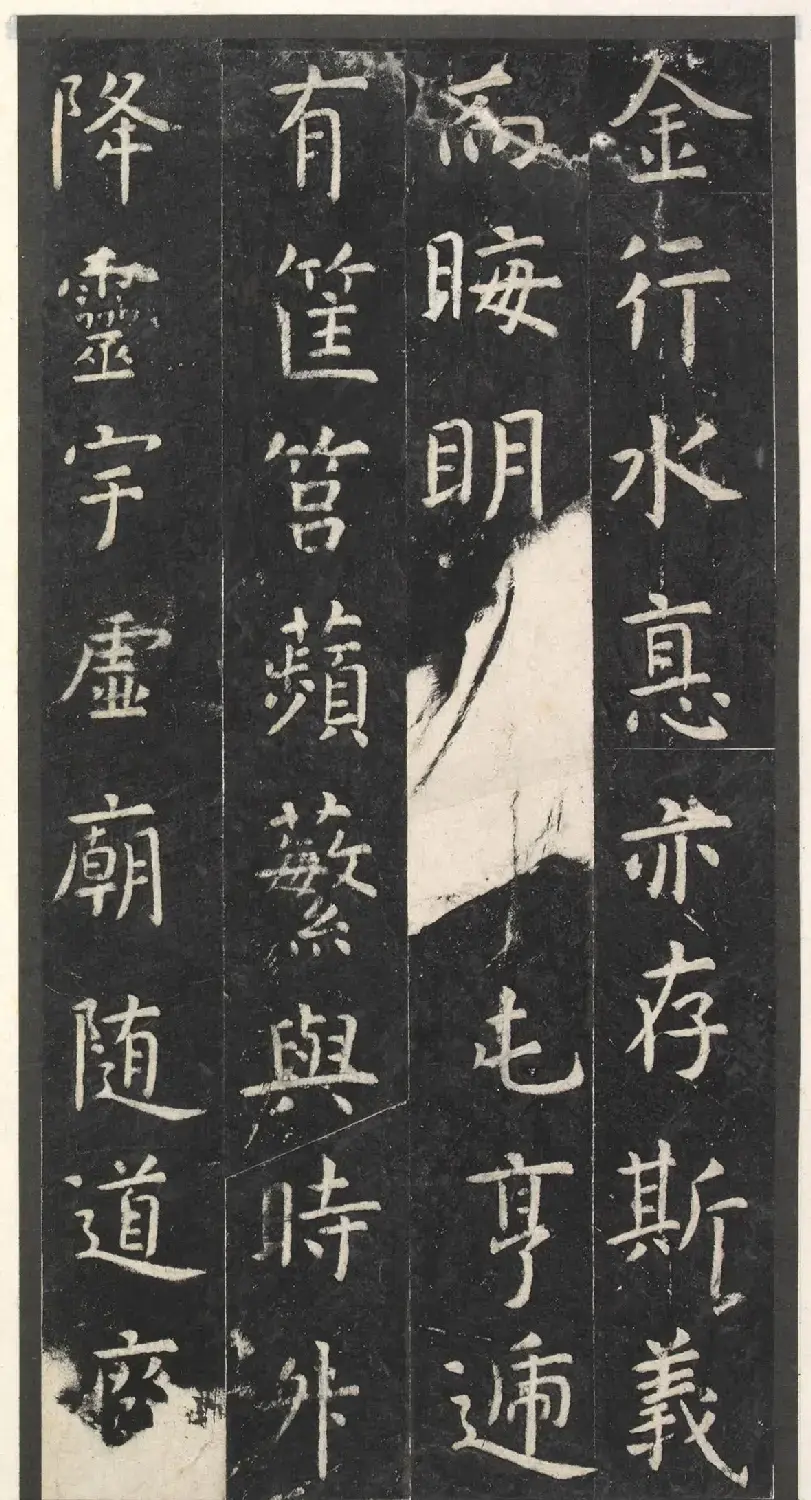 金行水惪亦存斯義
而晦明屯亨遞
有筐筥蘋蘩與時升
降靈宇虛廟隨道廢